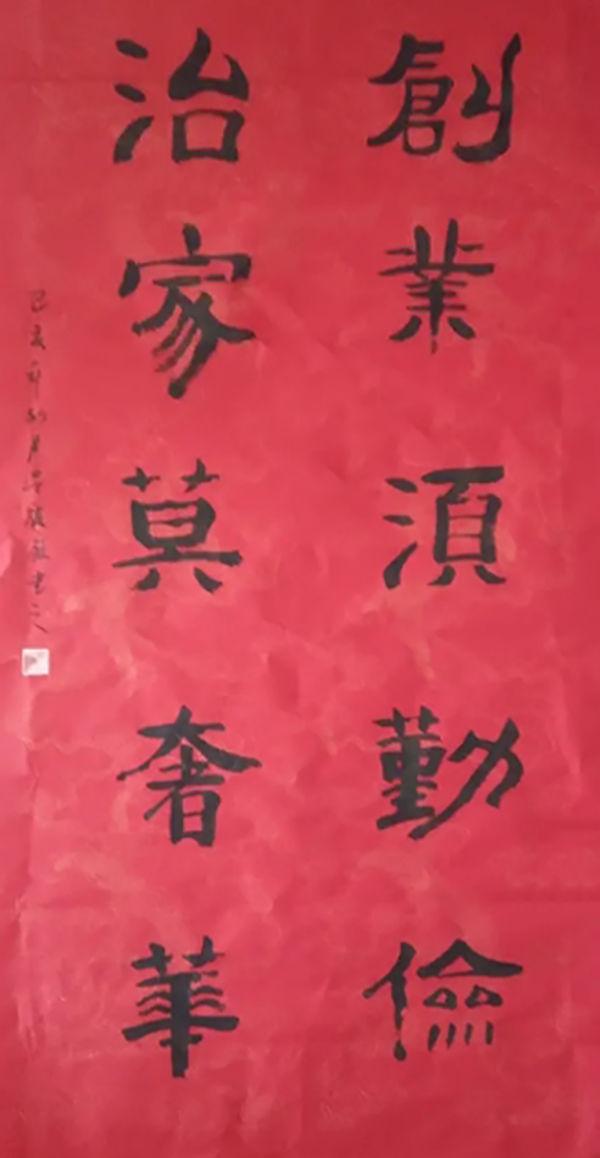 創業須勤儉
治家莫奢華
己亥年
書之